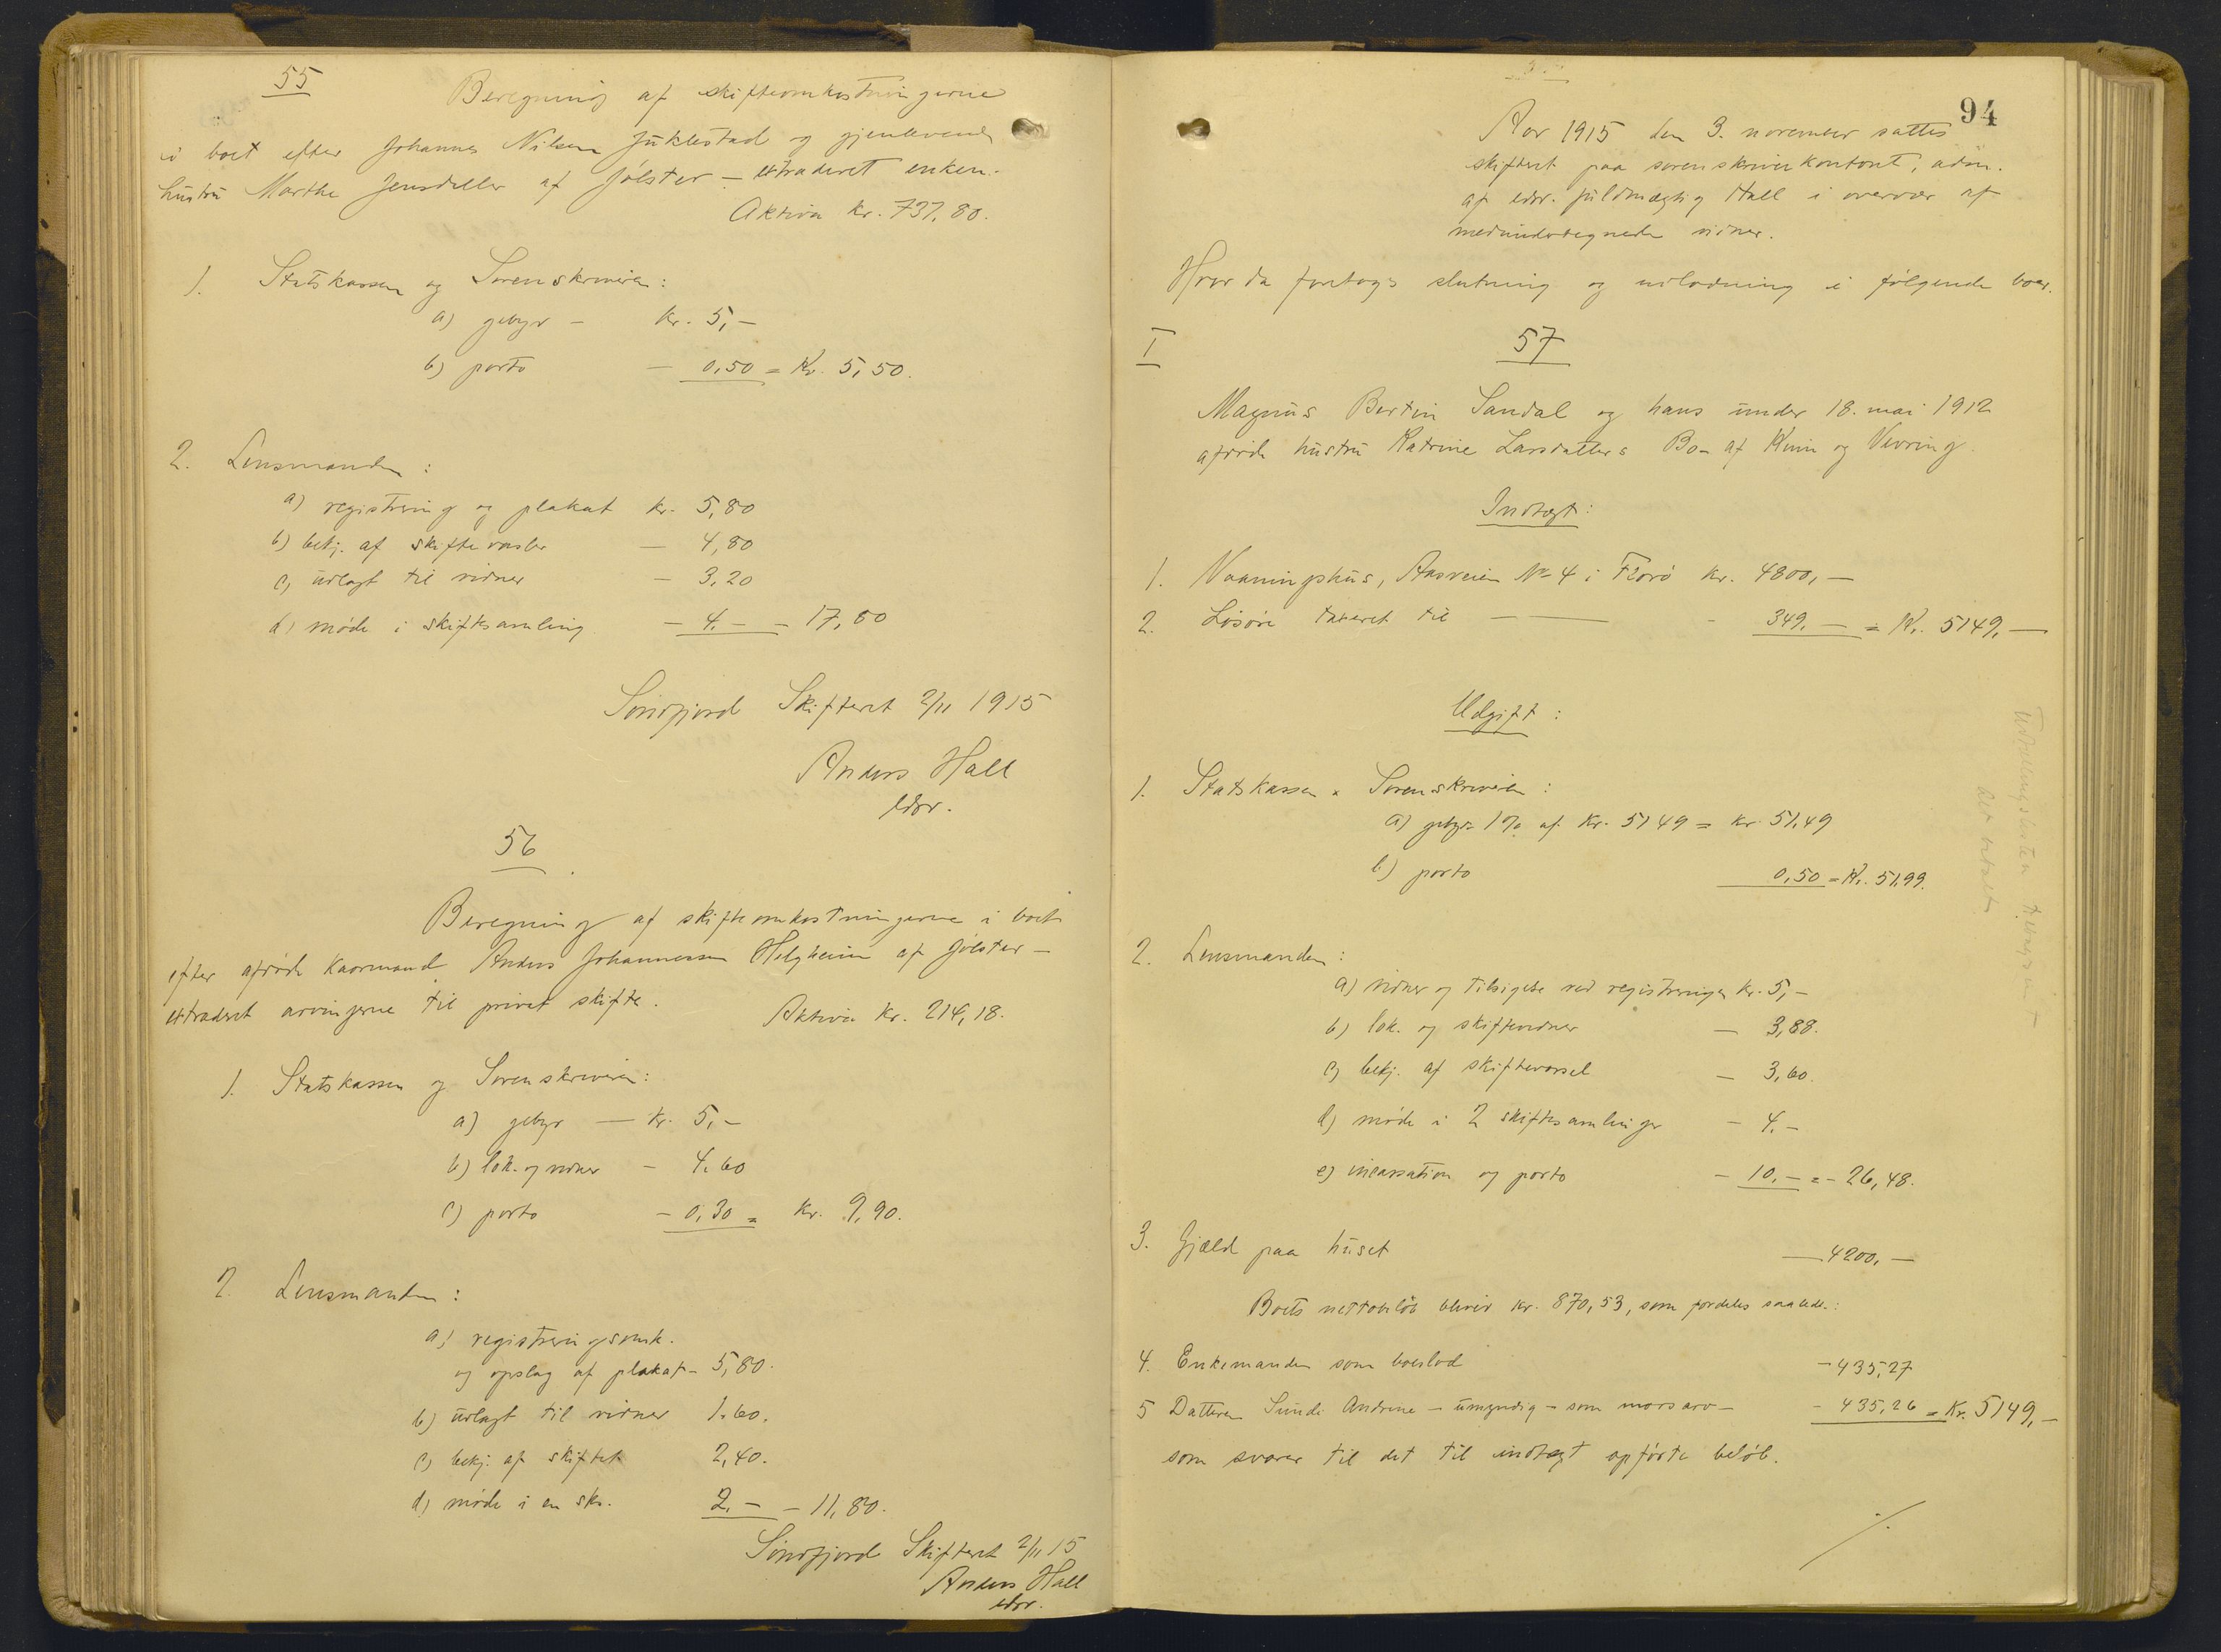 55
Beregning af skifteomkostningerne
i boet efter Johannes Nilsen Juklestad og gjenlevende
hustru Marthe Jensdatter af Jølster – extraderet enken.
Aktiva kr. 737,80.
1. Statskassen og Sorenskriveren:
a) gebyr – kr. 5,–
b) porto – 0,50 = Kr. 5,50.
2. Lensmanden:
a) registrering og plakat kr. 5,80
b) bekj. af skiftevarsler – 4,80
c) utlagt til vidner – 3,20
d) møde i skiftesamling – 4.– – 17,80
Søndfjord Skifteret 2/11 1915
Anders Hall
edsv.
56
Beregning af skifteomkostningerne i boet
efter afdøde kaarmand Anders Johannessen Helgheim af Jølster –
extraderet arvingerne til privat skifte.
Aktiva kr. 214,18.
1. Statskassen og Sorenskriveren:
a) gebyr – kr. 5,–
b) lok. og vidner – 4.60
c) porto – 0,30 = kr. 9,90.
2. Lensmanden:
a) registreringsomk.
og opslag af plakat – 5,80.
b) utlagt til vidner 1.60.
c) bekj. af skiftet 2,40.
d) møde i en sks. 2.– – 11,80.
Søndfjord Skifteret 2/11 15
Anders Hall
edsv.
94
Aar 1915 den 3. november sattes
skifteret paa sorenskriverkontoret, adm.
af edsv. fuldmægtig Hall i overvær af
medundertegnede vidner.
Hvor da foretages slutning og utlodning i følgende boer.
I
57
Magnus Bertin Sandal og hans under 18. mai 1912
afdøde hustru Katrine Larsdatters Bo – af Kinn og Vevring.
Indtægt:
1. Vaaningshus, Aasveien No 4 i Florø kr. 4800,–
2. Løsøre taxeret til – 349.– = Kr. 5149,–
Udgift:
1. Statskassen & Sorenskriveren:
a) gebyr 1% af kr. 5149 = kr. 51,49
b) porto 0,50 = Kr. 51,99.
2. Lensmanden:
a) vidner og tilsigelse ved registreringen kr. 5,–
b) lok. og skiftevidner – 3,88.
c) bekj. af skiftevarsel – 3,60.
d) møde i 2 skiftesamlinger – 4.–
e) incassation og porto – 10.– = – 26,48.
3. Gjæld paa huset – 4200,–
Boets nettobeløb bliver kr. 870,53, som fordeles saaledes:
4. Enkemanden som boeslod – 435,27
5 Datteren Andrine – umyndig – som morsarv – – 435,26 = Kr. 5149,–
som svarer til det til indtægt opførte beløb.
./.